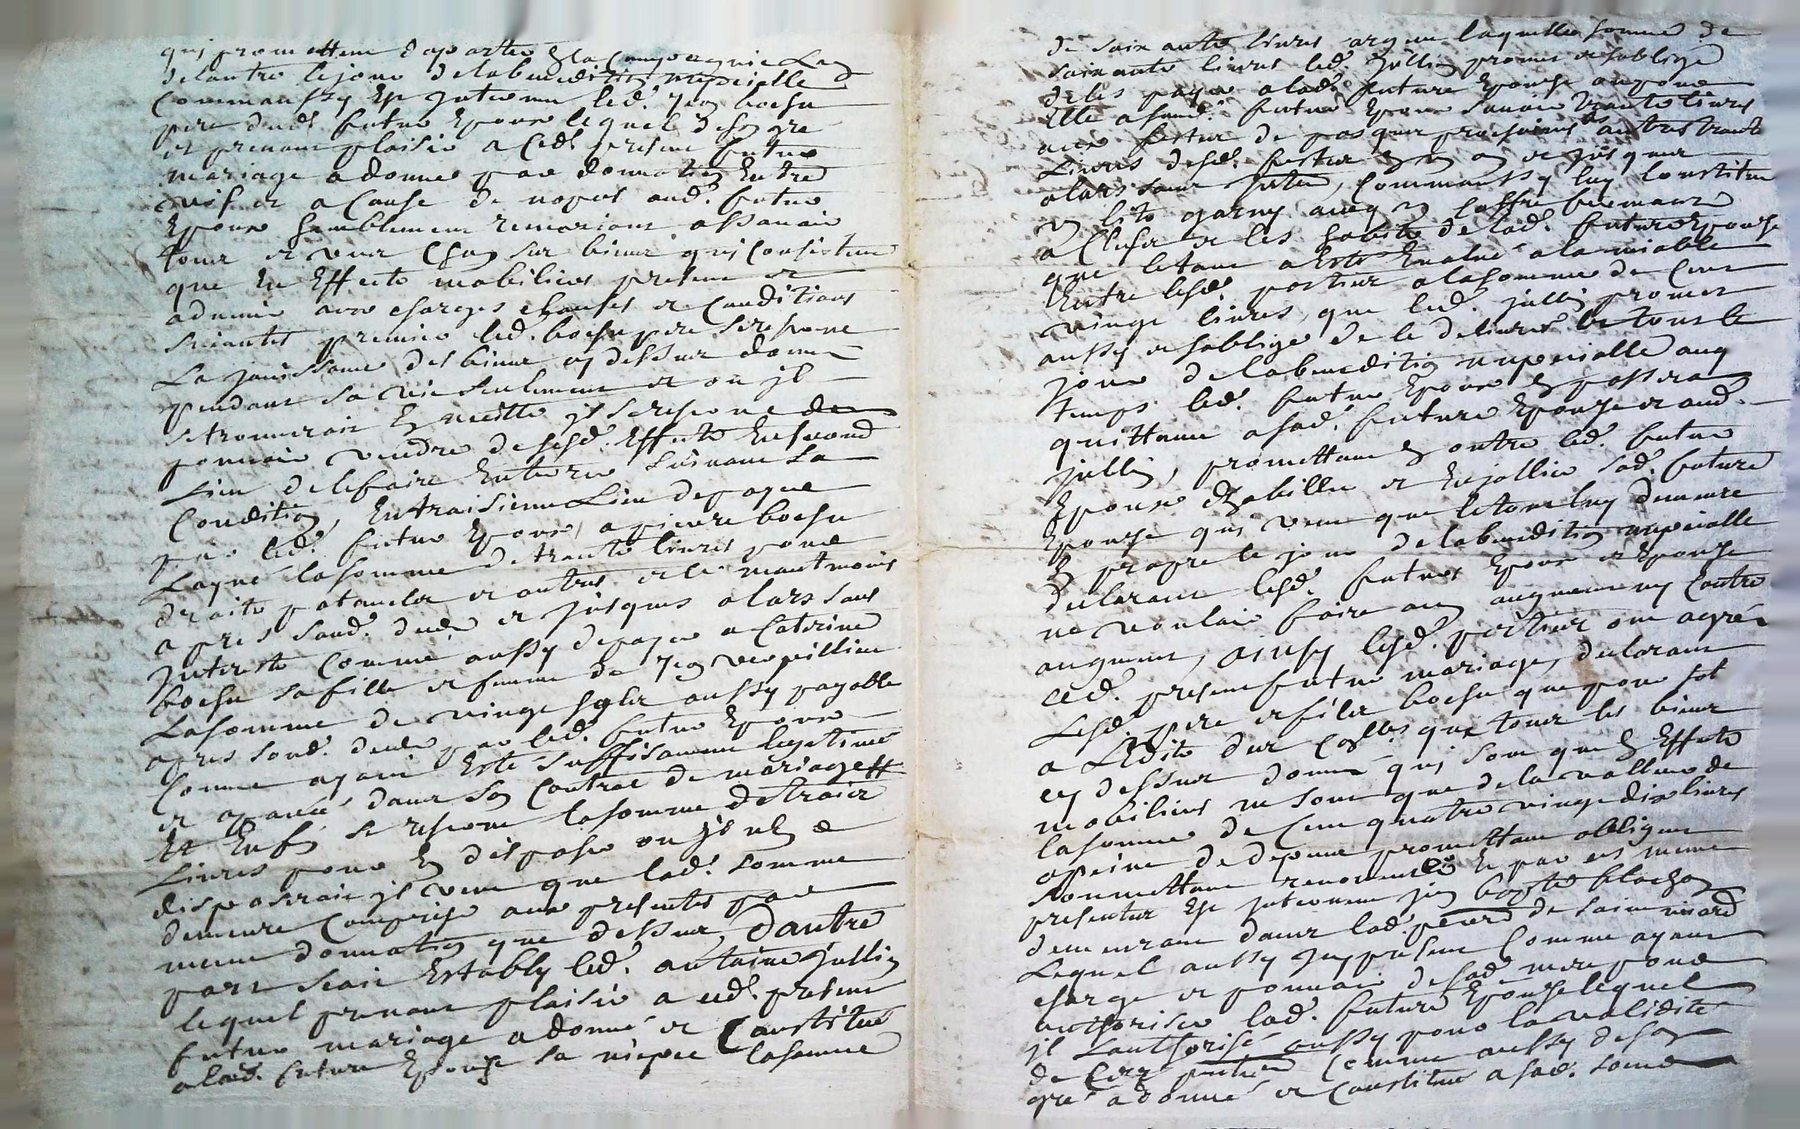 qui promettent d aporter & la Compagnie
de lautre le jour de la benedition nupcielle
Comm aussy Est Intervenu led. Jean boessu
pere dudt futur Epoux lequel de son gre
et prenant plaisir a Cedt present futur
mariage a donné par donnation Entre
vifs et a Cause de nopces aud. futur
Epoux humblement remerciant assavoir
tous et uns Chun ses biens qui Consistent
que En Effects mobiliers present et
advenir aux charges clauses et Conditions
suivantes premier led. boessu pere se reserve
La jouissance des biens cy dessus donnés
pendant sa vie seulement et ou jl
se trouverait En necessité jl se reserve de
pouvoir vendre de sesd. Effects En second
Lieu de le faire Enterrer suivant sa
Condition, En troisieme Lieu de payer
par led. futur Epoux a pierre boessu
Layné la somme de trante livres pour
droits paternels et autres
apres sond. deces et jusques alors sans
Interests Comme aussy de payer a Caterine
boessu sa fille et femme de Jean
La somme de vingt sols aussy payable
apres sond. deces par led. futur Epoux
Comme ayant Esté suffisamment legitimé
et apané dans son Contrat de mariage
Et Enfin se reserve la somme de trois
Livres pour En disposer ou jl n En
disposerait jl veut que lad. somme
demeure Comprise aux presentes par
meme donnation que dessus, D autre
part s est Estably led. antoine jullien
lequel prenant plaisir a ced. present
futur mariage a donné et Constitué
a lad. future Epouse sa niepce la somme
de soixante livres argent laquelle somme de
soixante livres led. jullien promet et soblige
de les payer a lad. future Epouse ou pour
Elle a sond. futur Epoux savoir trante livres
aux festes de pasques prochaines les autres trante
Livres desd. festes En un an et jusques
alors sans Interets, Comm aussy luy Constitue
un lit garny avec un coffre fermant
a Clefs et les habits de lad. future Epouse
que le tout a Esté Evalué a la miable
Entre lesd. parties a la somme de Cent
vingt livres, que led. jullien promet
aussy et soblige de le delivrer le tout le
jour de la benedition nupcialle auq
temps led. futur Epoux En passera
quittance a sad. future Epouse et aud.
jullien, promettant En outre led. futur
Epoux d habiller et Enjoller sad. future
Epouse qui veut que le tout luy demeure
En propre le jour de la benedition nupcialle
declarant lesd. futurs Epoux et Epouse
ne vouloir faire aucun augment ny Contre
augment, ainsy lesd. parties ont agréé
ced. present futur mariage, declarant
Lesd. pere et fils boessu que pour sat
a LEdit des que tous les biens
cy dessus donnés qui sont que En Effects
mobiliers ne sont que de la valleur de
la somme de Cent quatre vingt dix livres
a peine de depens promettant obligeant
soumettant renonceant Et par ces meme
presentes Est Intervenu jean baptiste blachon
demeurant dans lad. parr de saint
Lequel aussy Icy present Comme ayant
charge et pouvoir de sad. mere pour
authoriser lad. future Epouse lequel
jl Lauthorise aussy pour la validité
de Ces presentes Comme aussy de son
gré a donné et Constitué a sad. soeur